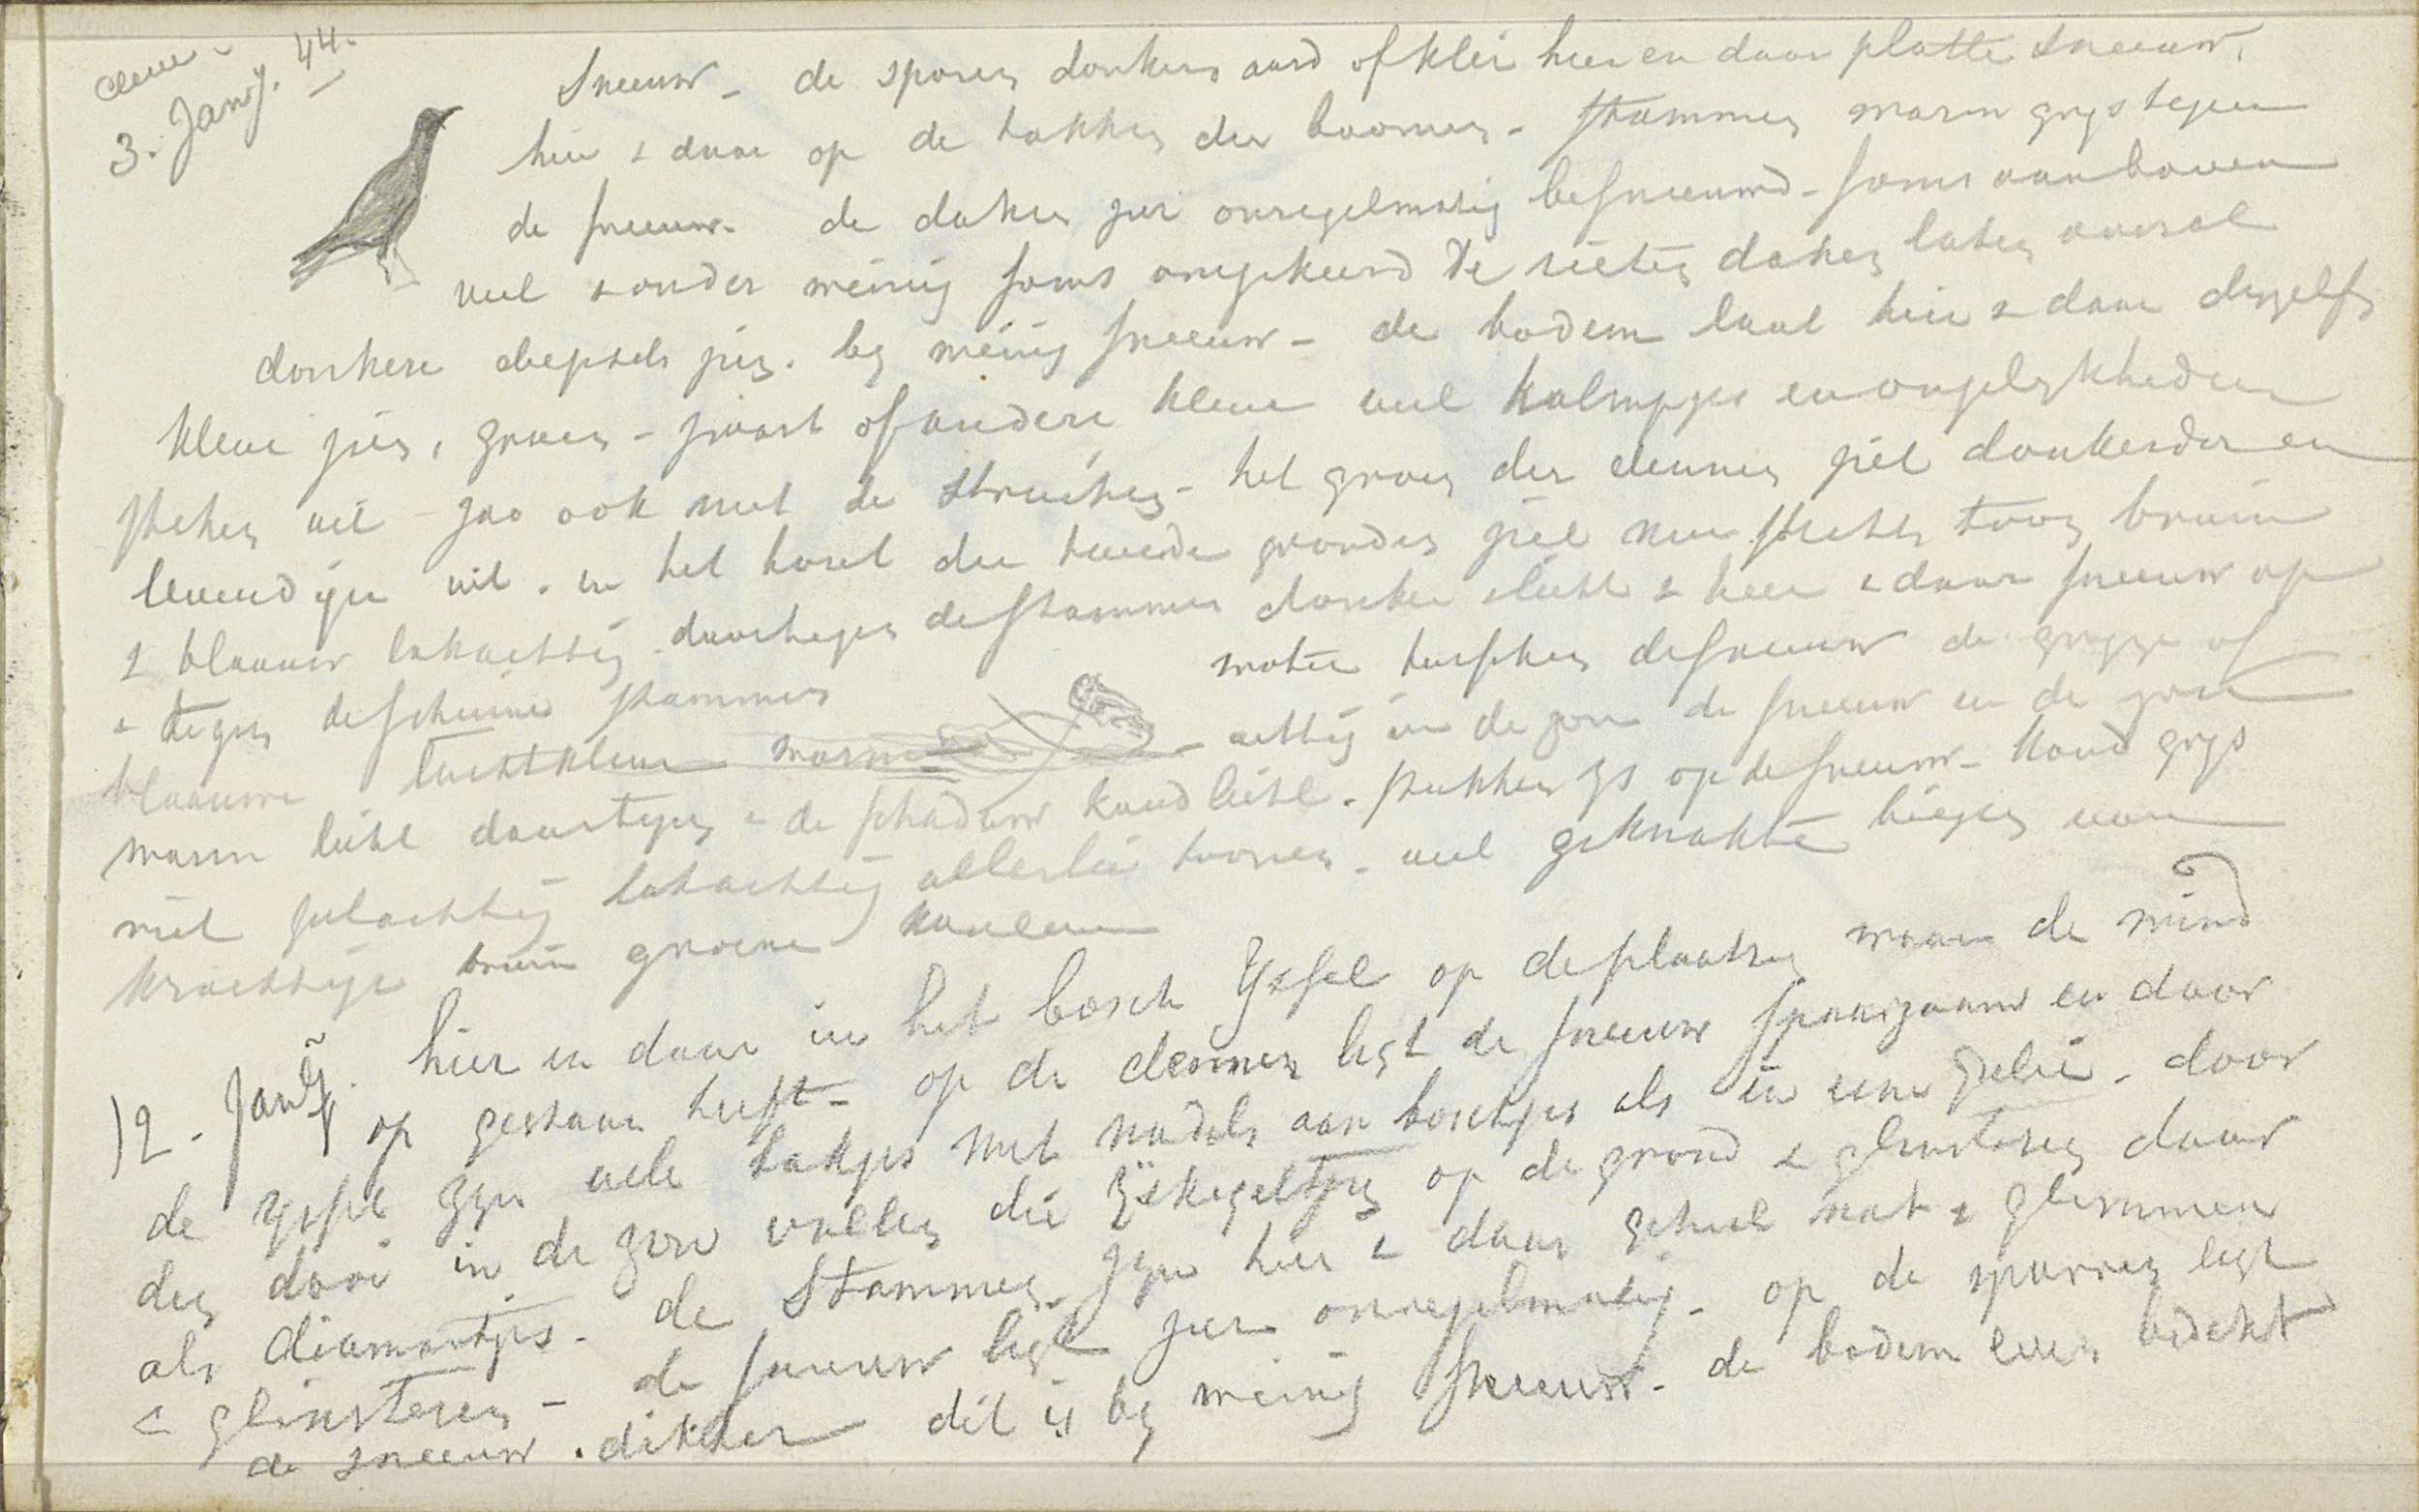 Cleve -
3. Janij. 44.
Sneeuw - de sporen donkere aard of klei hier en daar platte sneeuw.
hier & daar op de takken der boomen - stammen warm grys tegen
de sneeuw - de daken zeer onregelmatig besneeuwd - soms van boven
veel & onder weinig soms omgekeerd de rieten daken laten overal
donkere zien. by weinig sneeuw - de bodem laat hier & daar deszelfs
kleur zien, groen - zwart of andere kleur veel en ongelykheden
steken uit - zoo ook met de struiken - het groen der dennen ziet donkerder en
levendiger uit. in het hout der tweede gronden ziet men slechts toon bruin
& blaauw lakachtig daartegen de stammen donker & licht & hier & daar sneeuw op
& tegen de schuine stammen
water tusschen de sneeuw de gryze of
blaauwe luchtkleur warm - achtig in de zon de sneeuw in de zon
warm licht daartegen & de schaduw koud licht. stukken ys op de sneeuw - koud grys
niet lakachtig allerlei toonen - veel geknakte biezen van
krachtige bruin groene
12 - Janij. hier en daar in het bosch Yssel op de plaatsen waar de wind
op gestaan heeft - op de dennen ligt de sneeuw spaarzaam en door
de yssel zyn vele takjes met nadels aan boschjes als in eene gelei - door
den dooi in de zon vallen die yskegeltjes op de grond & glinsteren daar
als diamantjes - de stammen zyn hier & daar geheel nat & glimmen
& glinsteren - de sneeuw ligt zeer onregelmatig - op de sparren ligt
de sneeuw. dikker dit is by weinig sneeuw - de bodem even bedekt